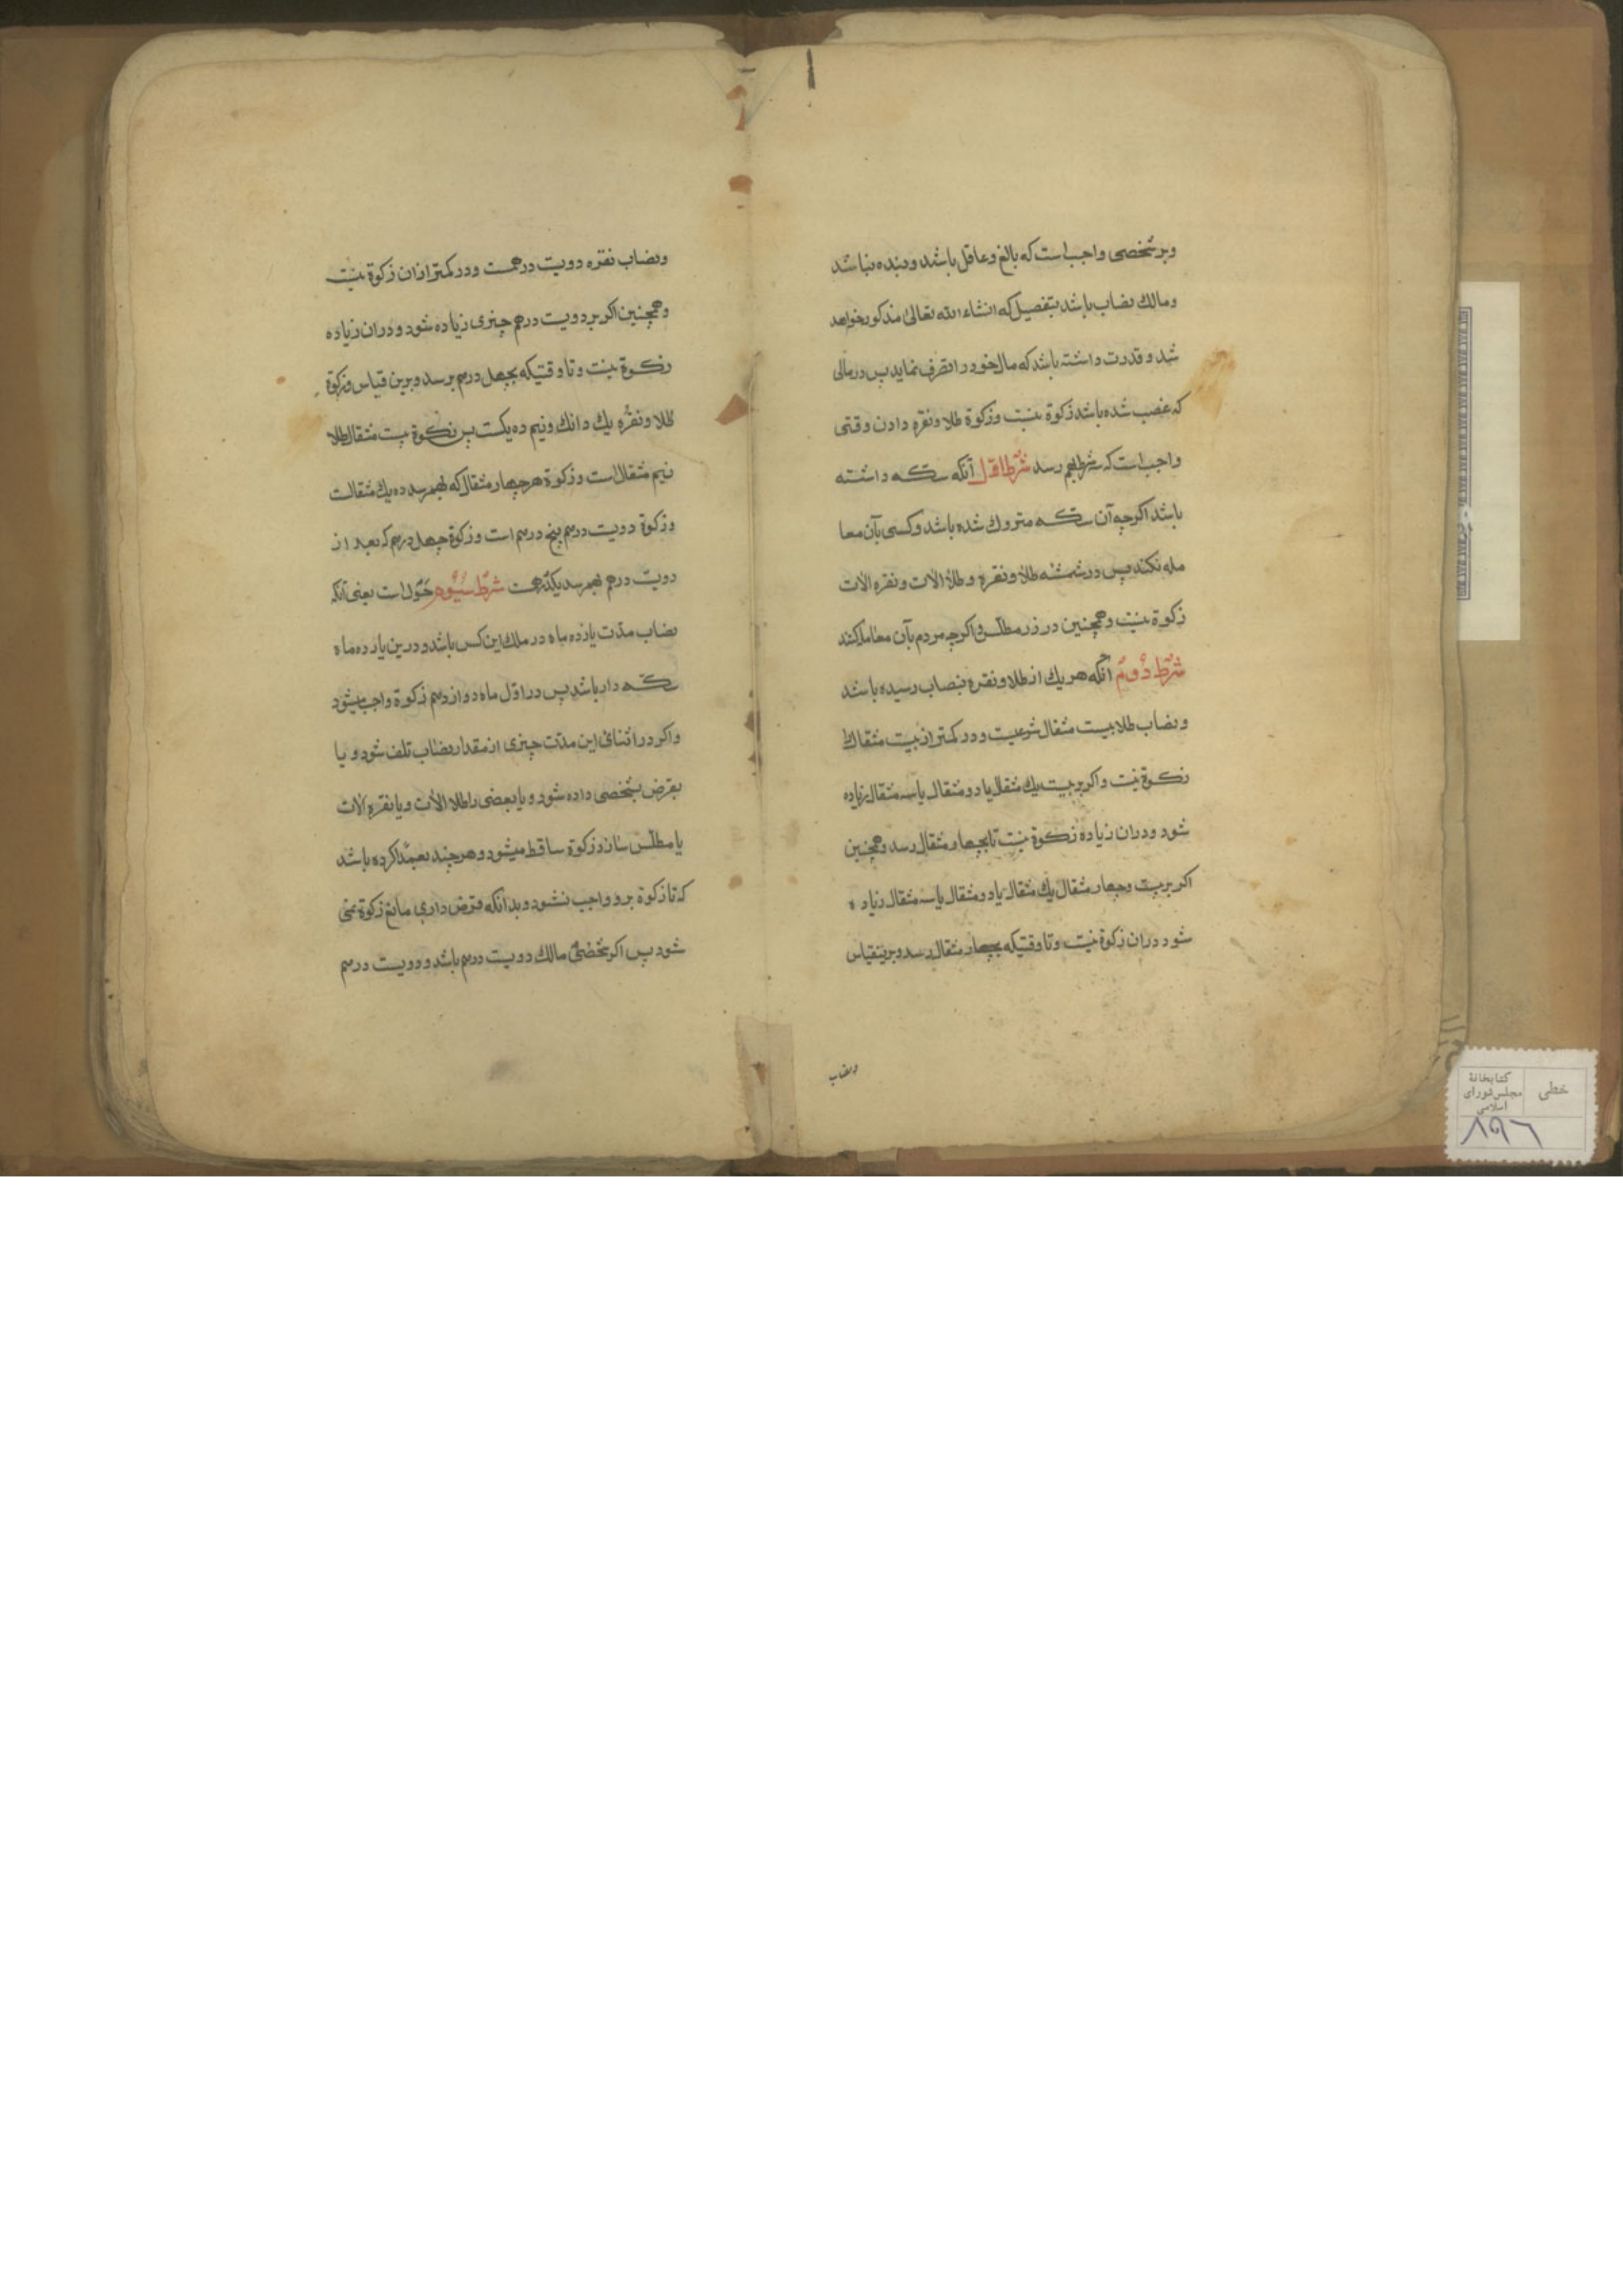 وبر شخصی واجب است که بالغ وعاقل باشد وبنده نباشد
ومالك نصاب باشد بتفصیل که انشاء الله تعالی مذکور خواهد
شد وقدرت داشته باشد که مال خود را تصرف نماید پس در مالی
که غصب شده باشد زکوة نیست وزکوة طلا ونقره دادن وقتی
واجب است که شرط بهم رسد شرط اوّل آنکه سکه داشته
باشد اکرچه آن سکه متروك شده باشد وکسی بآن معا
مله نکند پس در شمشه طلا ونقره وطلا الات ونقره الات
زکوة نیست وهمچنین در زر مطلس واکرچه مردم بآن معامله کنند
شرط دوم آنکه هر یك از طلا ونقره بنصاب رسیده باشد
ونصاب طلا بیست مثقال شرعیست ودر کمتر از بیست مثقال طلا
زکوة نیست واکر بر بیست یك مثقال یا دو مثقال یا سه مثقال زیاده
شود ودران زیاده زکوة نیست تا بچهار مثقال رسد وهمچنین
اکر بر بیست وچهار مثقال یك مثقال یا دو مثقال یا سه مثقال زیاده
شود دران زکوة نیست وتا وقتیکه بچهار مثقال رسد وبرینقیاس
ونصاب
ونصاب نقره دویست درهمست ودر کمتر ازان زکوة نیست
وهمچنین اکر بر دویست درهم چیزی زیاده شود ودران زیاده
زکوة نیست وتا وقتیکه بچهل درهم برسد وبرین قیاس وزکوة
طلا ونقره یك دانك ونیم ده یکست پس زکوة بیست مثقال طلا
نیم مثقال است وزکوة هر چهار مثقال که بهمرسد ده یك مثقالست
وزکوة دویست درهم پنج درهم است وزکوة چهل درهم که بعد از
دویست درهم بهمرسد یکدرهمست شرط سیوم حول است یعنی آنکه
نصاب مدّت یازده ماه در ملك این کس باشد ودرین یازده ماه
سکه دار باشد پس در اوّل ماه دوازدهم زکوة واجب میشود
واکر در اثنای این مدّت چیزی از مقدار نصاب تلف شود ویا
بقرض بشخصی داده شود ویا بعضی را طلا الات ویا نقره الات
یا مطلس سازد زکوة ساقط میشود وهرچند بعمدا کرده باشد
که تا زکوة برو واجب نشود وبدانکه قرض داری مانع زکوة نمی
شود پس اکر شخصی مالك دویست درهم باشد ودویست درهم
خطی
کتابخانهٔ
مجلس شورای
اسلامی
۸۹۶